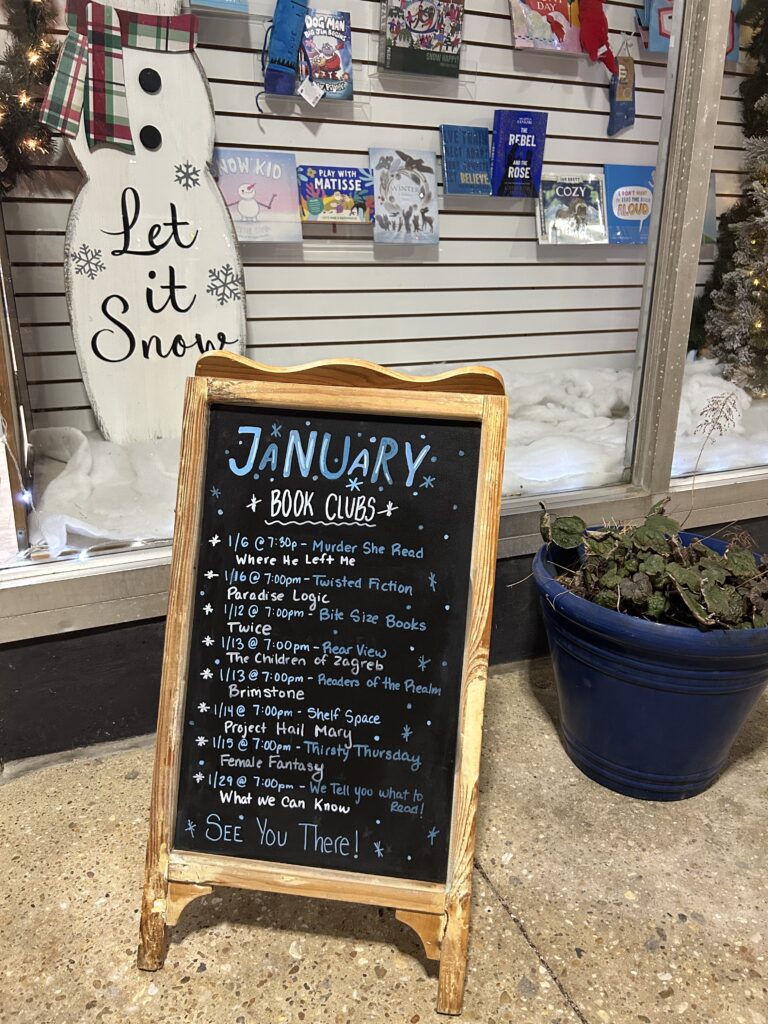 DOG MAN
BIG JIM BEGINS
SNOW HAPPY!
DAY
Let
it
Snow
NOW KID
PLAY WITH
MATISSE
WINTER
BELIEVE
THE REBEL
AND THE
ROSE
COZY
I DON'T WANT
TO READ THIS BOOK
ALOUD
JANUARY
BOOK CLUBS
1/6 @ 7:30p - Murder She Read
Where He Left Me
1/16 @ 7:00pm - Twisted Fiction
Paradise Logic
1/12 @ 7:00pm - Bite Size Books
Twice
1/13 @ 7:00pm - Rear View
The Children of Zagreb
1/13 @ 7:00pm - Readers of the Realm
Brimstone
1/14 @ 7:00pm - Shelf Space
Project Hail Mary
1/15 @ 7:00pm - Thirsty Thursday
Female Fantasy
1/29 @ 7:00pm - We Tell you what to
Read!
What we Can Know
SEE YOU THERE!